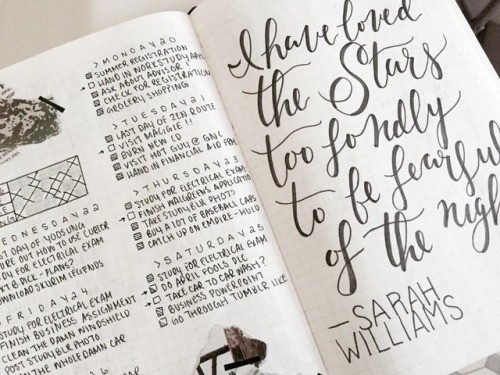 > MONDAY 20
SUMMER REGISTRATION
HAND IN WORKSTUDY APP.
ASK ABOUT ADVISOR!
CHECK FOR REGISTRATION
GROCERY SHOPPING
> TUESDAY 21
LAST DAY OF ZEN ROUTE
VISIT MAGGIE!!
BURN NEW CD
VISIT HOT GUY @ GNC
HAND IN FINANCIAL AID
> THURSDAY 23
STUDY FOR ELECTRICAL EXAM
FINISH WALGREENS
TAKE STUDYBLR PHOTO
BUY A LOT OF BASEBALL CAPS
CATCH UP ON EMPIRE - HULU
> SATURDAY 25
STUDY FOR ELECTRICAL EXAM
DO APRIL FOOLS DLC
TAKE CAR TO CAR WASH?
BUSINESS POWERPOINT
GO THROUGH TUMBLR LIKE
EDNESDAY 22
ST DAY OF YOOSUNG
URE OUT HOW TO USE CURLER
DY FOR ELECTRICAL EXAM
XT @ DLC - PLANS?
WNLOAD SKYRIM LEGENDS
FRIDAY 24
STUDY FOR ELECTRICAL EXAM
FINISH BUSINESS ASSIGNMENT
CLEAN THE DAMN WINDSHIELD
POST STUDYBLR PHOTO
N THE WHOLE DAMN CAR
I have loved
the Stars
too fondly
to be fearfu
of the nigh
— SARAH
WILLIAMS